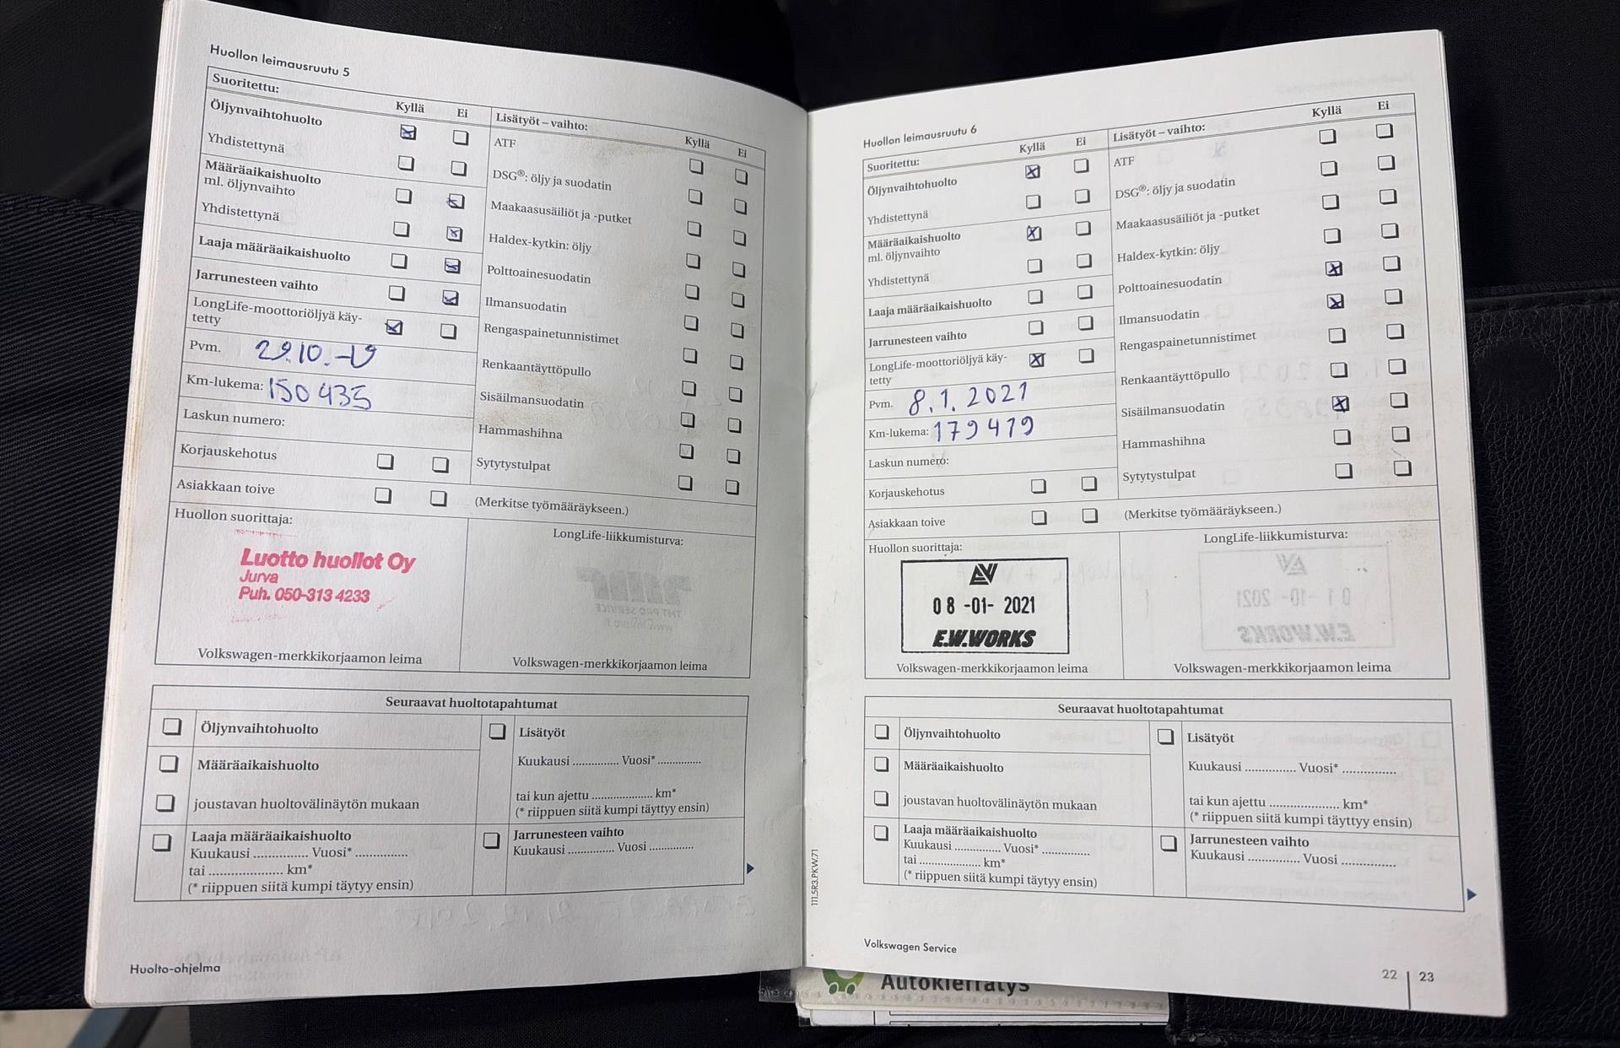 Huollon leimausruutu 5
Suoritettu:
Kyllä Ei
Öljynvaihtohuolto
Yhdistettynä
Määräaikaishuolto
ml. öljynvaihto
Yhdistettynä
Laaja määräaikaishuolto
Jarrunesteen vaihto
LongLife-moottoriöljyä käy-
tetty
Pvm. 29.10.-19
Km-lukema: 150 435
Laskun numero:
Korjauskehotus
Asiakkaan toive
Lisätyöt – vaihto:
Kyllä Ei
ATF
DSG®: öljy ja suodatin
Maakaasusäiliöt ja -putket
Haldex-kytkin: öljy
Polttoainesuodatin
Ilmansuodatin
Rengaspainetunnistimet
Renkaantäyttöpullo
Sisäilmansuodatin
Hammashihna
Sytytystulpat
(Merkitse työmääräykseen.)
Huollon suorittaja:
Luotto huollot Oy
Jurva
Puh. 050-313 4233
Volkswagen-merkkikorjaamon leima
LongLife-liikkumisturva:
Volkswagen-merkkikorjaamon leima
Seuraavat huoltotapahtumat
Öljynvaihtohuolto
Määräaikaishuolto
joustavan huoltovälinäytön mukaan
Laaja määräaikaishuolto
Kuukausi ............... Vuosi* ..............
tai .................... km*
(* riippuen siitä kumpi täytyy ensin)
Lisätyöt
Kuukausi ............. Vuosi* ............
tai kun ajettu .................. km*
(* riippuen siitä kumpi täyttyy ensin)
Jarrunesteen vaihto
Kuukausi .............. Vuosi ............
Huolto-ohjelma
Huollon leimausruutu 6
Suoritettu:
Kyllä Ei
Öljynvaihtohuolto
Yhdistettynä
Määräaikaishuolto
ml. öljynvaihto
Yhdistettynä
Laaja määräaikaishuolto
Jarrunesteen vaihto
LongLife-moottoriöljyä käy-
tetty
Pvm. 8.1.2021
Km-lukema: 179 419
Laskun numero:
Korjauskehotus
Asiakkaan toive
Lisätyöt – vaihto:
Kyllä Ei
ATF
DSG®: öljy ja suodatin
Maakaasusäiliöt ja -putket
Haldex-kytkin: öljy
Polttoainesuodatin
Ilmansuodatin
Rengaspainetunnistimet
Renkaantäyttöpullo
Sisäilmansuodatin
Hammashihna
Sytytystulpat
(Merkitse työmääräykseen.)
Huollon suorittaja:
08 -01- 2021
E.W.WORKS
Volkswagen-merkkikorjaamon leima
LongLife-liikkumisturva:
Volkswagen-merkkikorjaamon leima
Seuraavat huoltotapahtumat
Öljynvaihtohuolto
Määräaikaishuolto
joustavan huoltovälinäytön mukaan
Laaja määräaikaishuolto
Kuukausi .............. Vuosi* .............
tai ..................... km*
(* riippuen siitä kumpi täyttyy ensin)
Lisätyöt
Kuukausi .............. Vuosi* ...............
tai kun ajettu .................... km*
(* riippuen siitä kumpi täyttyy ensin)
Jarrunesteen vaihto
Kuukausi .............. Vuosi ...............
111.5R3.PKW.71
Volkswagen Service
22 23
Autokierrätys